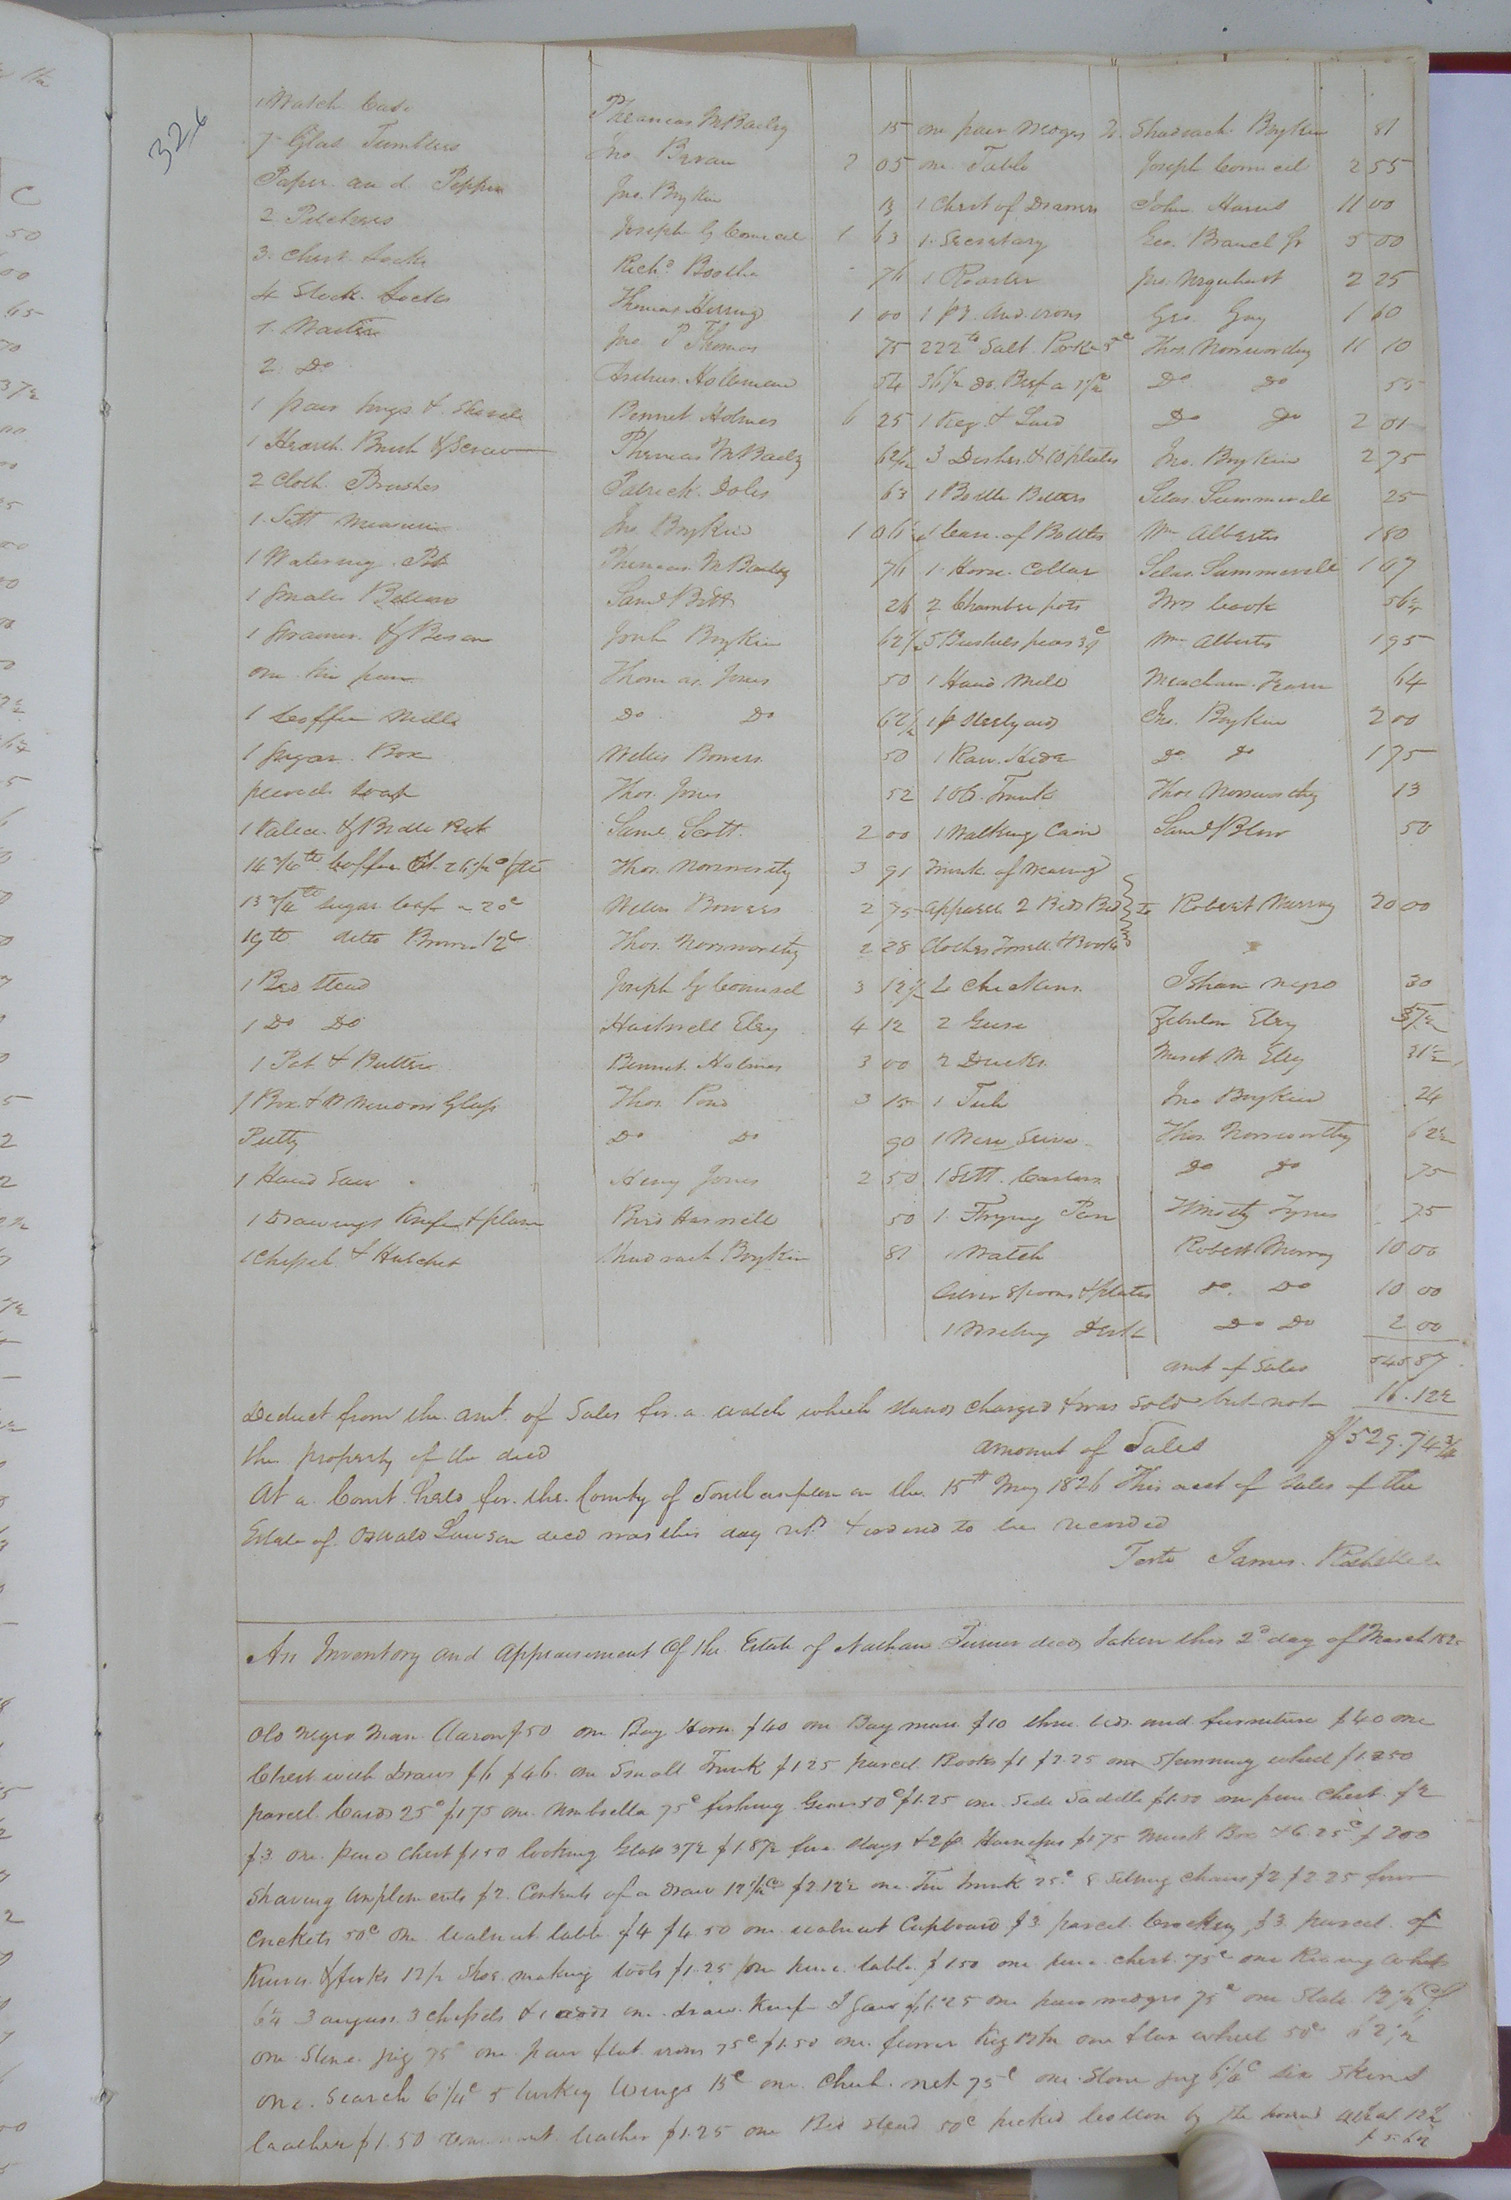 326
1 Watch Case Phenneas M Bailey 15
7 Glas Tumblers Jno Bevan 2 05
Paper and Pepper Jno. Boykin 13
2 Pitchers Joseph G Council 1 63
3 Chest Locks Richd Boothe 76
4 Stock Locks Thomas Herring 1 00
1 Waiter Jno P Thomas 75
2 Do Arthur Holleman 54
1 pair tongs & Shovel Bennet Holmes 6 25
1 Hearth Brush & Phenneas M Baily 62½
2 Cloth Brushes Patrick Doles 63
1 Sett Measures Jno Boykin 1 06
1 Watering Pot Phenneas M Bailey 76
1 small Bellows Saml Britt 26
1 & Boykin 62½
one tin pan Thomas Jones 50
1 Coffee Mills Do Do 62½
1 Sugar Box Willis Bowers 50
parcel Soap Thos. Jones 52
1 Valice & Saml Scott 2 00
Coffee Thos. Norsworthy 3 91
13¾ lb Sugar loaf a 20c Willis Bowers 2 75
19 lb ditto Brown 12c Thos. Norsworthy 2 28
1 Bed Stead Joseph G Council 3 12½
1 Do Do Hartwell Eley 4 12
1 Pot & Butter Bennet Holmes 3 00
1 Box & Window Glass Thos. Pond 3 15
Putty Do Do 90
1 Hand Saw Henry Jones 2 50
1 Drawing Knife & plane 50
1 Chissel & Hatchet Shadrach Boykin 81
one pair Shadrach Boykin 81
one Table Joseph Council 2 55
1 Chest of Drawers John Harris 11 00
1 Secretary Geo. Branch Jr 5 00
1 Roaster Jno. Urquhart 2 25
1 pr. And irons Geo. Gay 1 60
222 lb Salt Pork 5c Thos. Norsworthy 11 10
36½ do. Beef a 1½c Do Do 55
1 Keg & Lard Do Do 2 01
3 Dishes & plates Jno. Boykin 2 75
1 Bottle Bitters Silas Summerell 25
1 Case of Bottles Wm Alberts 1 80
1 Horse Collar Silas Summerell 1 67
2 Chamber pots Cook 56¼
5 Bushels peas 39c Wm Alberts 1 95
1 Hand Mill Meacham 64
1 pr Steelyards Jno. Boykin 2 00
1 Raw Hide Do Do 1 75
1 Old Trunk Thos Norsworthy 13
1 Walking Cain Saml Blow 50
Trunk of wearing
apparel 2 Beds Bed to Robert Murray 20 00
Clothes Towell & Books
Chickens Isham negro 30
2 Geese Zebulon Eley 37½
2 Ducks M Eley 31½
1 Tub Jno Boykin 24
1 Wire Seive Thos. Norsworthy 62½
1 Sett Castors Do Do 75
1 Frying Pan Timothy Tynes 75
1 Watch Robert Murray 10 00
Silver spoons & plates Do. Do 10 00
1 Writing Desk Do Do 2 00
amt of Sales 545 87
Deduct from the amt. of Sales for a watch which stands charged & was sold but not 16.12½
the property of the decd amount of Sales $529.74¾
At a Court held for the County of Southampton on the 15th May 1826 This acct of Sales of the
Estate of Oswald Lawson decd was this day retd. & ordered to be recorded
Teste James Rochelle
An Inventory and appraisement of the Estate of Nathan Turner decd, taken this 2d day of March 182
Old negro Man Aaron $50 one Bay Horse $40 one Bay mare $10 three beds and furniture $40 one
Chest with Draws $6 $46 one Small Trunk $1 25 parcel Books $1 $2.25 one Spinning wheel
parcel Cards 25c $1 75 one Umbrella 75c fishing Gear 50c $1.25 one Side Saddle $1.50 one pine Chest $2
$3 one pine Chest $1 50 looking Glass 37½ $1.87½ five slays & 2 pr Harnefses $1 75 Box & 25c $2 00
Shaving implements $2 Contents of a Draw 12½c $2 12½ one Tin Trunk 25c 8 Setting Chairs $2 $2.25 four
Crickets 50c one walnut table $4 $4.50 one walnut Cupboard $3 parcel Crockery $3 parcel of
Knives & forks 12½ Shoe making tools $1.25 one pine table $1 50 one pine chest 75c one
6¼ 3 augurs 3 chissels & one draw Knife $1.25 one pair 75c one Slate 12½c
one Stone jug 75c one pair flat irons 75c $1.50 one one flax wheel 50c 62½
one Search 6¼c 5 turkey Wings 15c one net 75c one Stone jug 6¼c six Skins
leather $1.50 leather $1.25 one Bed stead 50c picked Cotton by the pound